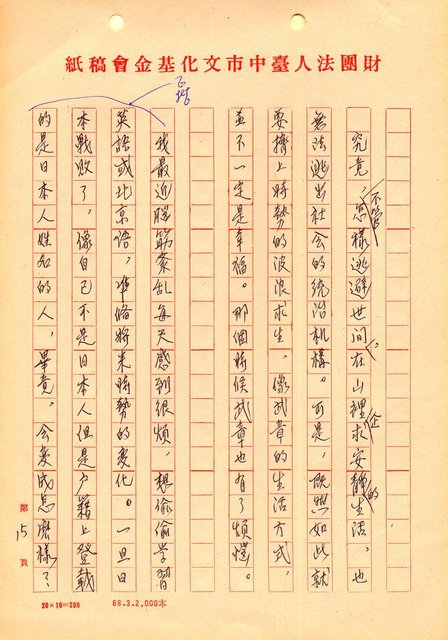 財團法人臺中市文化基金會稿紙
究竟,不管怎樣逃避世間,在山裡企求安靜的生活,也
無法逃出社会的統治机構。可是,既然如此就
要擠上時勢的波浪求生,像武章的生活方式,
並不一定是幸福。那個時候武章也有了煩惱。
我最近腦筋紊乱每天感到很煩,想偷偷学習
英語或北京语,準俻將来時勢的変化。一旦日
本戰敗了,像自己不是日本人但是户籍上登載
的是日本人姓名的人,畢竟,会変成怎麼樣?
第15頁
20×10=200
68.3.2,000本